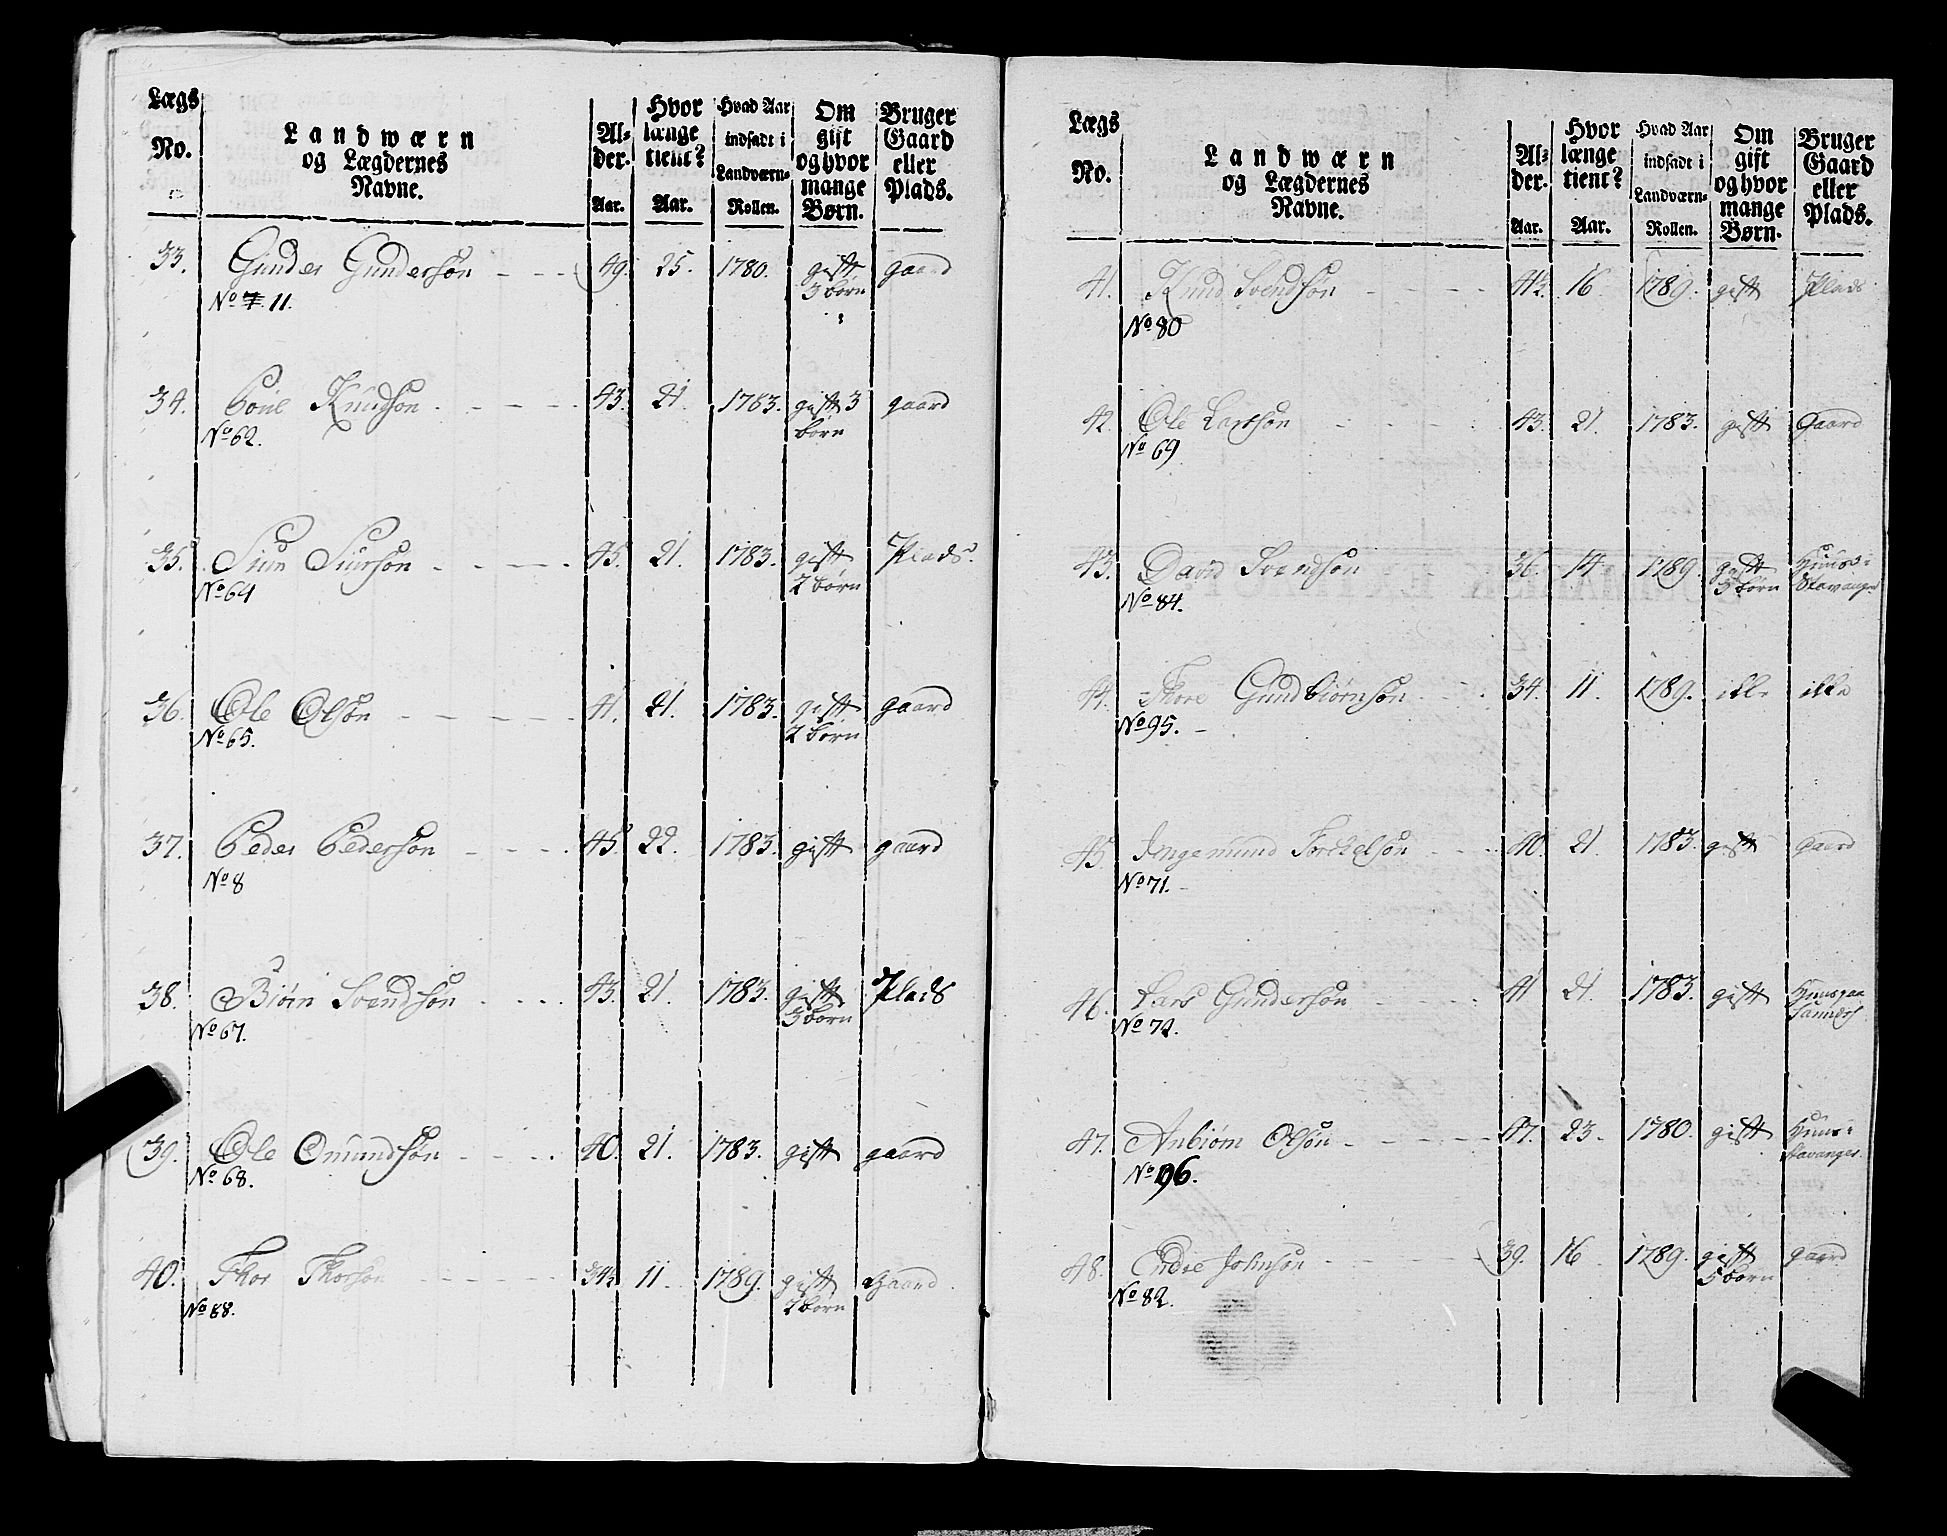 Lægs No. | Landwærn og Lægdernes Navne. | Al-der. Aar. | Hvor længe tient? Aar. | Hvad Aar indsadt i Landværn-Rollen. | Om gift og hvor mange Børn. | Bruger Gaard eller Plads.
33. Gunder Gunderson - - - 49. 25. 1780. gift gaard
No 11. 3 børn
34. Poul Knudson - - - - 43. 21. 1783. gift 3 gaard
No 62. børn
35. Siur Siurson - - - - 45. 21. 1783. gift Plads.
No 64 2 børn
36. Ole Olson - - - - - 41. 21. 1783. gift gaard
No 65. 2 børn
37. Peder Pederson - - - - 45. 22. 1783. gift gaard
No 8
38. Biørn Svendsøn - - - - 43. 21. 1783. gift Plads
No 67. 3 børn
39. Ole Omundsøn - - - - 40. 21. 1783. gift gaard
No 68.
40. Thor Thorson - - - - - 34½ 11. 1789. gift Gaard
No 88. 2 børn
Lægs No. | Landwærn og Lægdernes Navne. | Al-der. Aar. | Hvor længe tient? Aar. | Hvad Aar indsadt i Landværn-Rollen. | Om gift og hvor mange Børn. | Bruger Gaard eller Plads.
41. Knud Svendsøn - - - - 16. 1789. gift Plads
No 80
42. Ole Larsøn - - - - 43. 21. 1783. gift Gaard
No 69.
43. David Svendsøn 36. 14 1789. gift Huus i
No 84. 3 børn Stavanger
44. Thore Gundbiørnsøn - - - 34. 11. 1789. ikke ikke
No 95. -
45. Ingemund Torckelsøn - - - 40. 21 1783. gift gaard
No 71. -
46. Lars Gundersøn - - - - 41 21. 1783. gift
No 72.
47. Anbiørn Olsøn - - - - - 47. 23. 1780. gift Huus i
No 96. Stavanger.
48. Endre Johnsøn - - - - 39. 16 1789. gift gaard
No 82. 5 børn